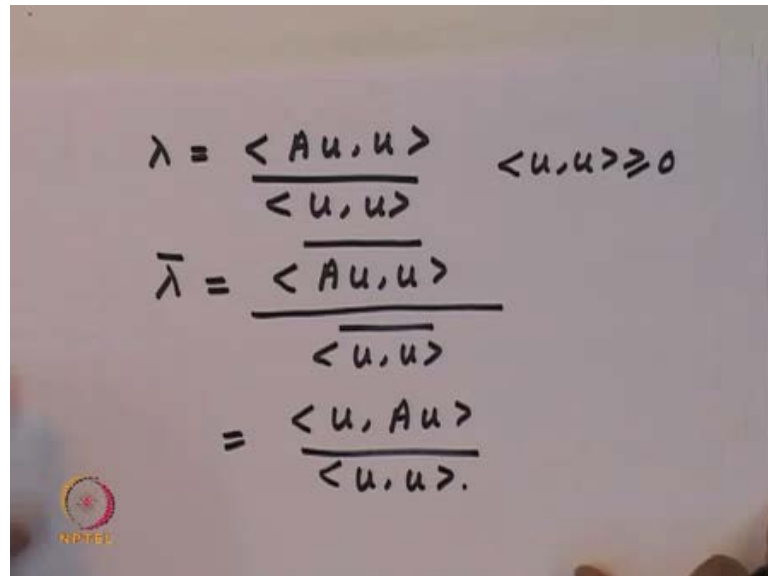 λ = < Au, u > / < u, u >   < u, u > ⩾ 0
λ̄ = < \overline{Au, u} > / < \overline{u, u} >
= < u, Au > / < u, u >.
NPTEL